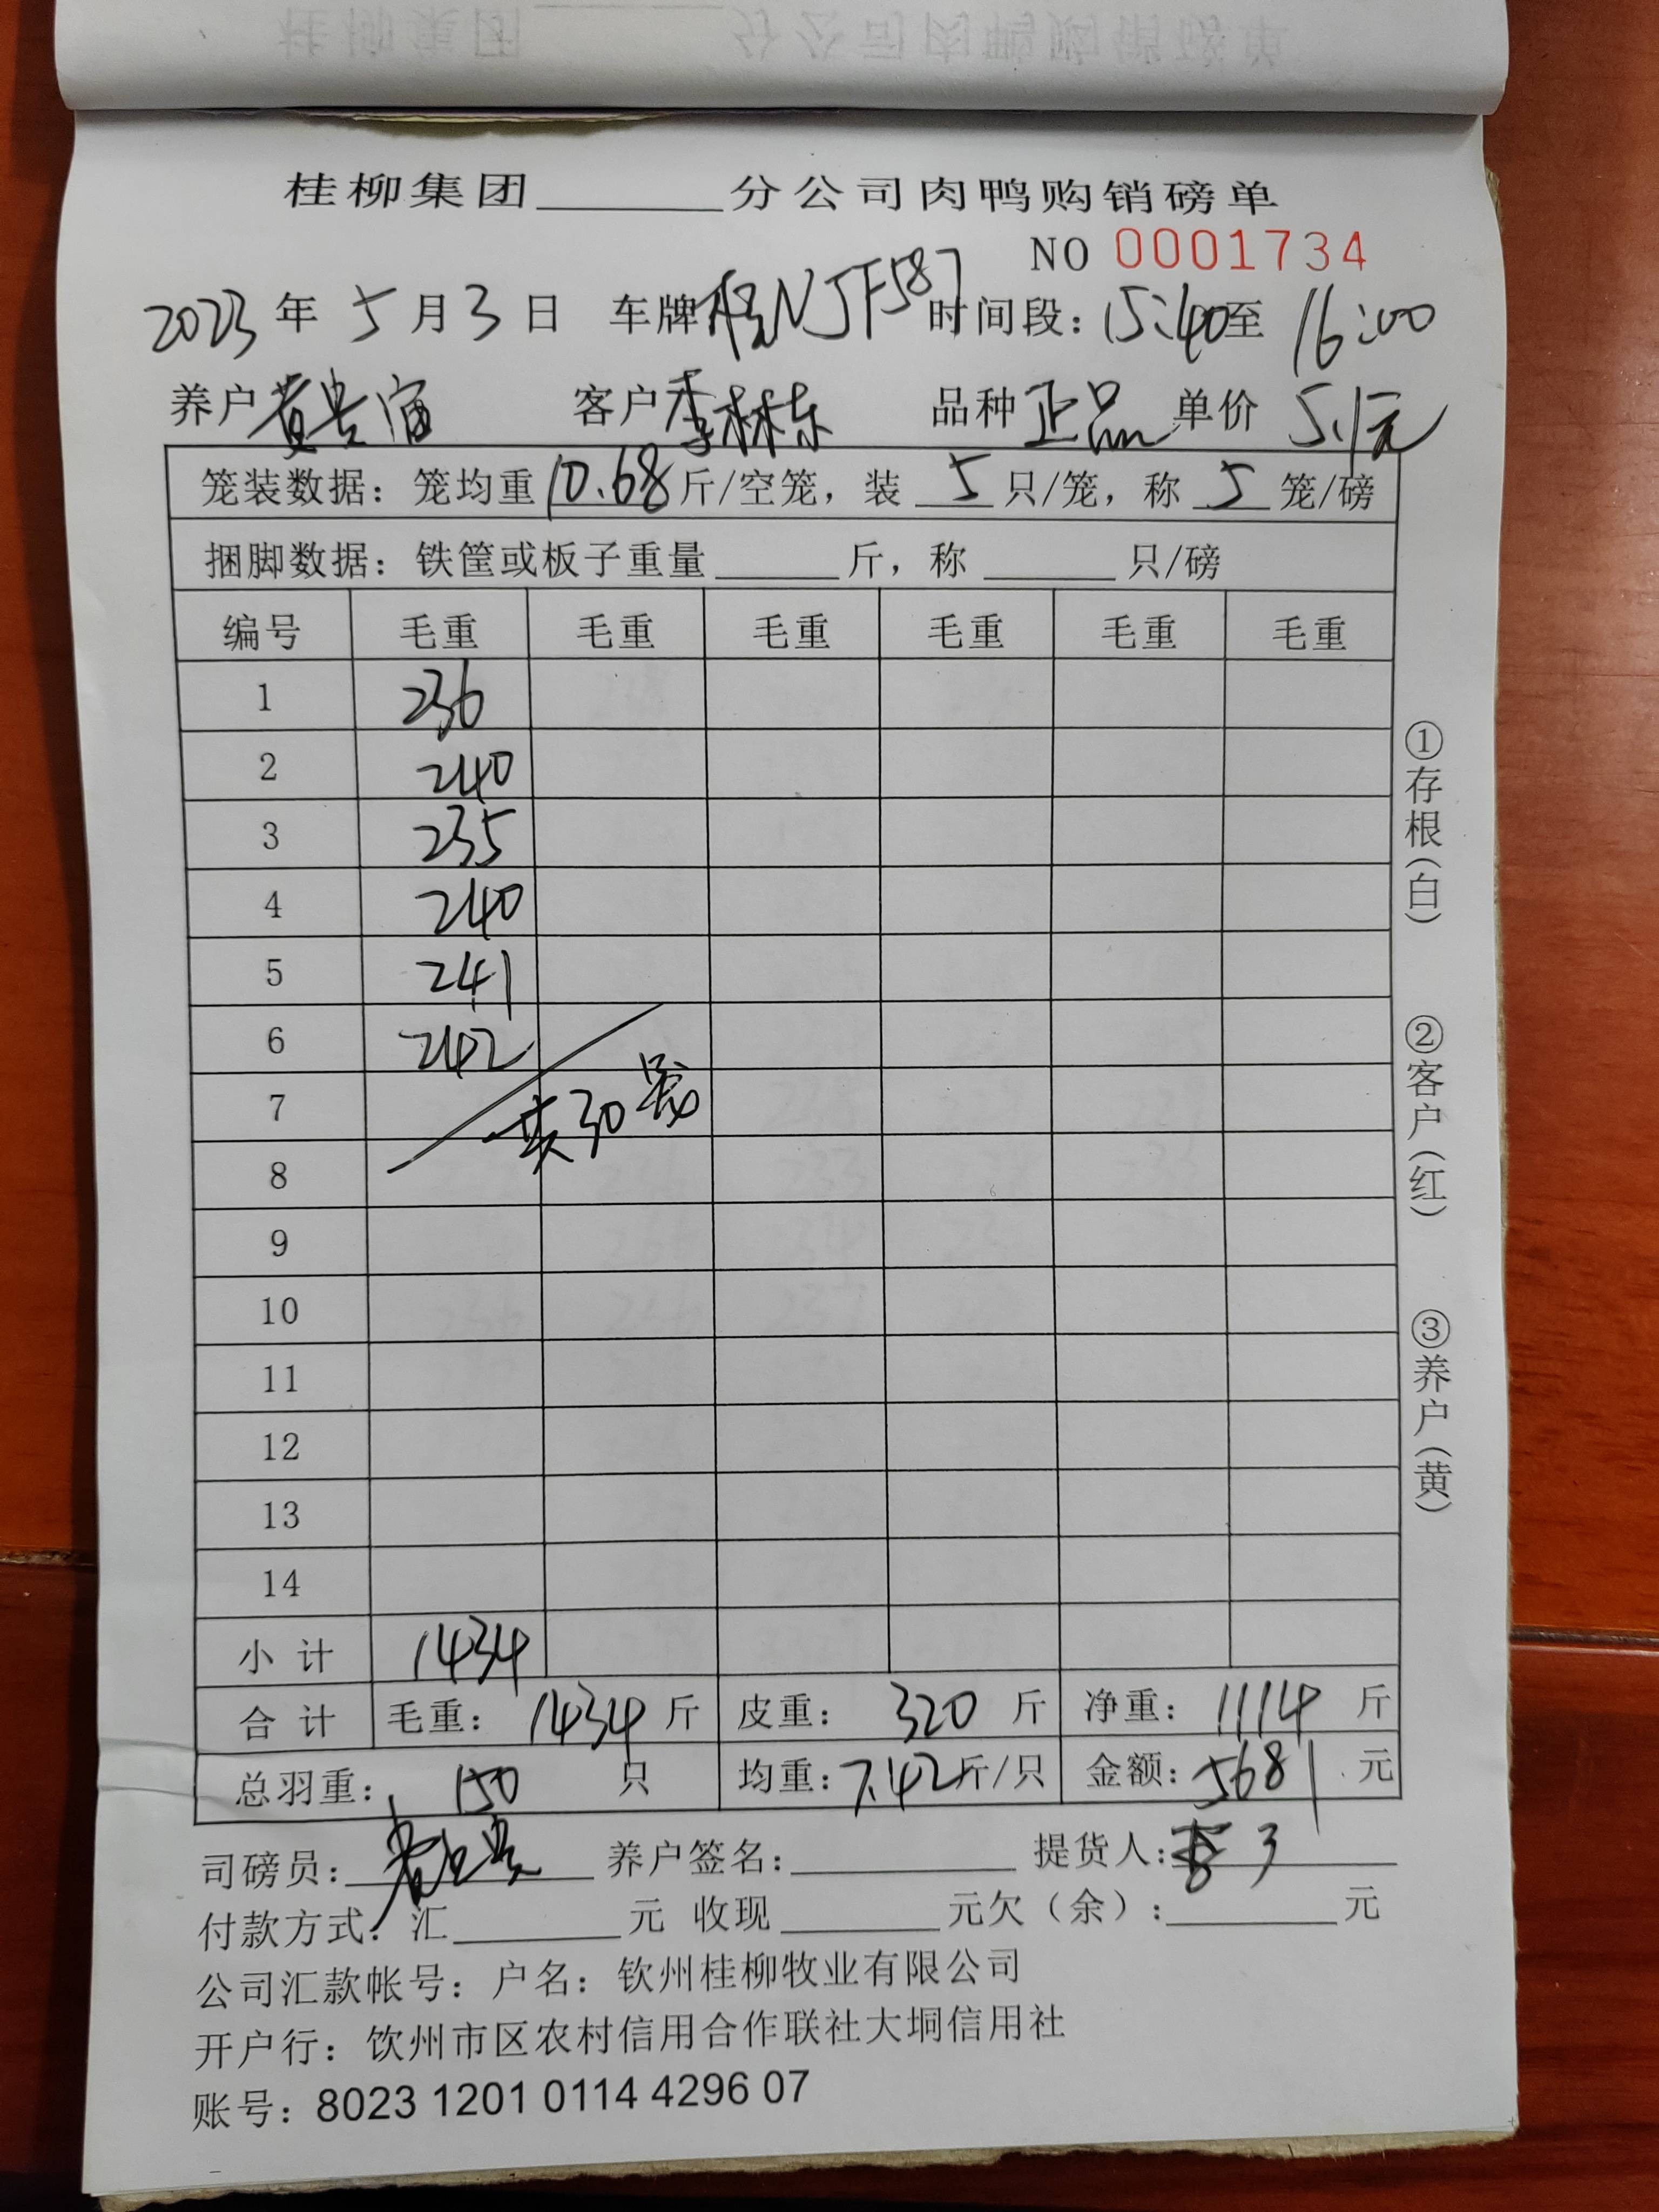 桂柳集团______分公司肉鸭购销磅单
NO 0001734
2023年 5月3日 车牌桂NJF587时间段：15:40至 16:00
养户 黄 客户 李林东 品种 正品 单价 5.1元
笼装数据：笼均重10.68斤/空笼，装 5 只/笼，称 5 笼/磅
捆脚数据：铁筐或板子重量______斤，称______只/磅
编号 毛重 毛重 毛重 毛重 毛重 毛重
1 236
2 240
3 235
4 240
5 241
6 242
7 共30笼
8
9
10
11
12
13
14
小计 1434
合计 毛重：1434斤 皮重：320斤 净重：1114斤
总羽重：150只 均重：7.42斤/只 金额：5681元
司磅员： 养户签名：______ 提货人：李3
付款方式：汇______元 收现______元欠（余）:______元
公司汇款帐号：户名：钦州桂柳牧业有限公司
开户行：饮州市区农村信用合作联社大垌信用社
账号：8023 1201 0114 4296 07
①存根（白）
②客户（红）
③养户（黄）